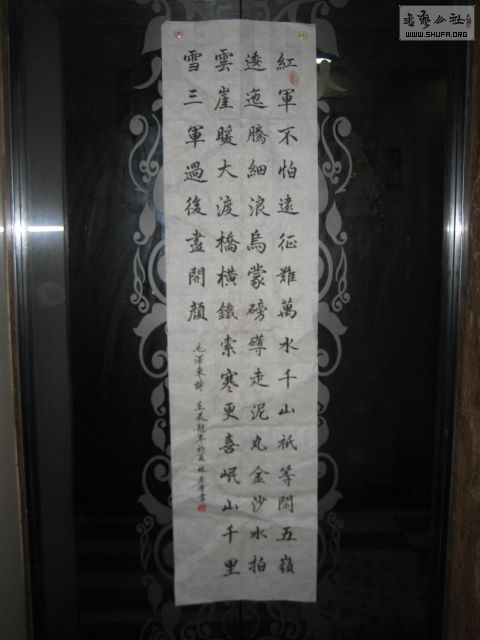 紅軍不怕遠征難萬水千山祇等閒五嶺
逶迤騰細浪烏蒙磅礴走泥丸金沙水拍
雲崖暖大渡橋橫鐵索寒更喜岷山千里
雪三軍過後盡開顏
毛澤東詩 壬辰龍年初夏 書
書藝公社
WWW.SHUFA.ORG